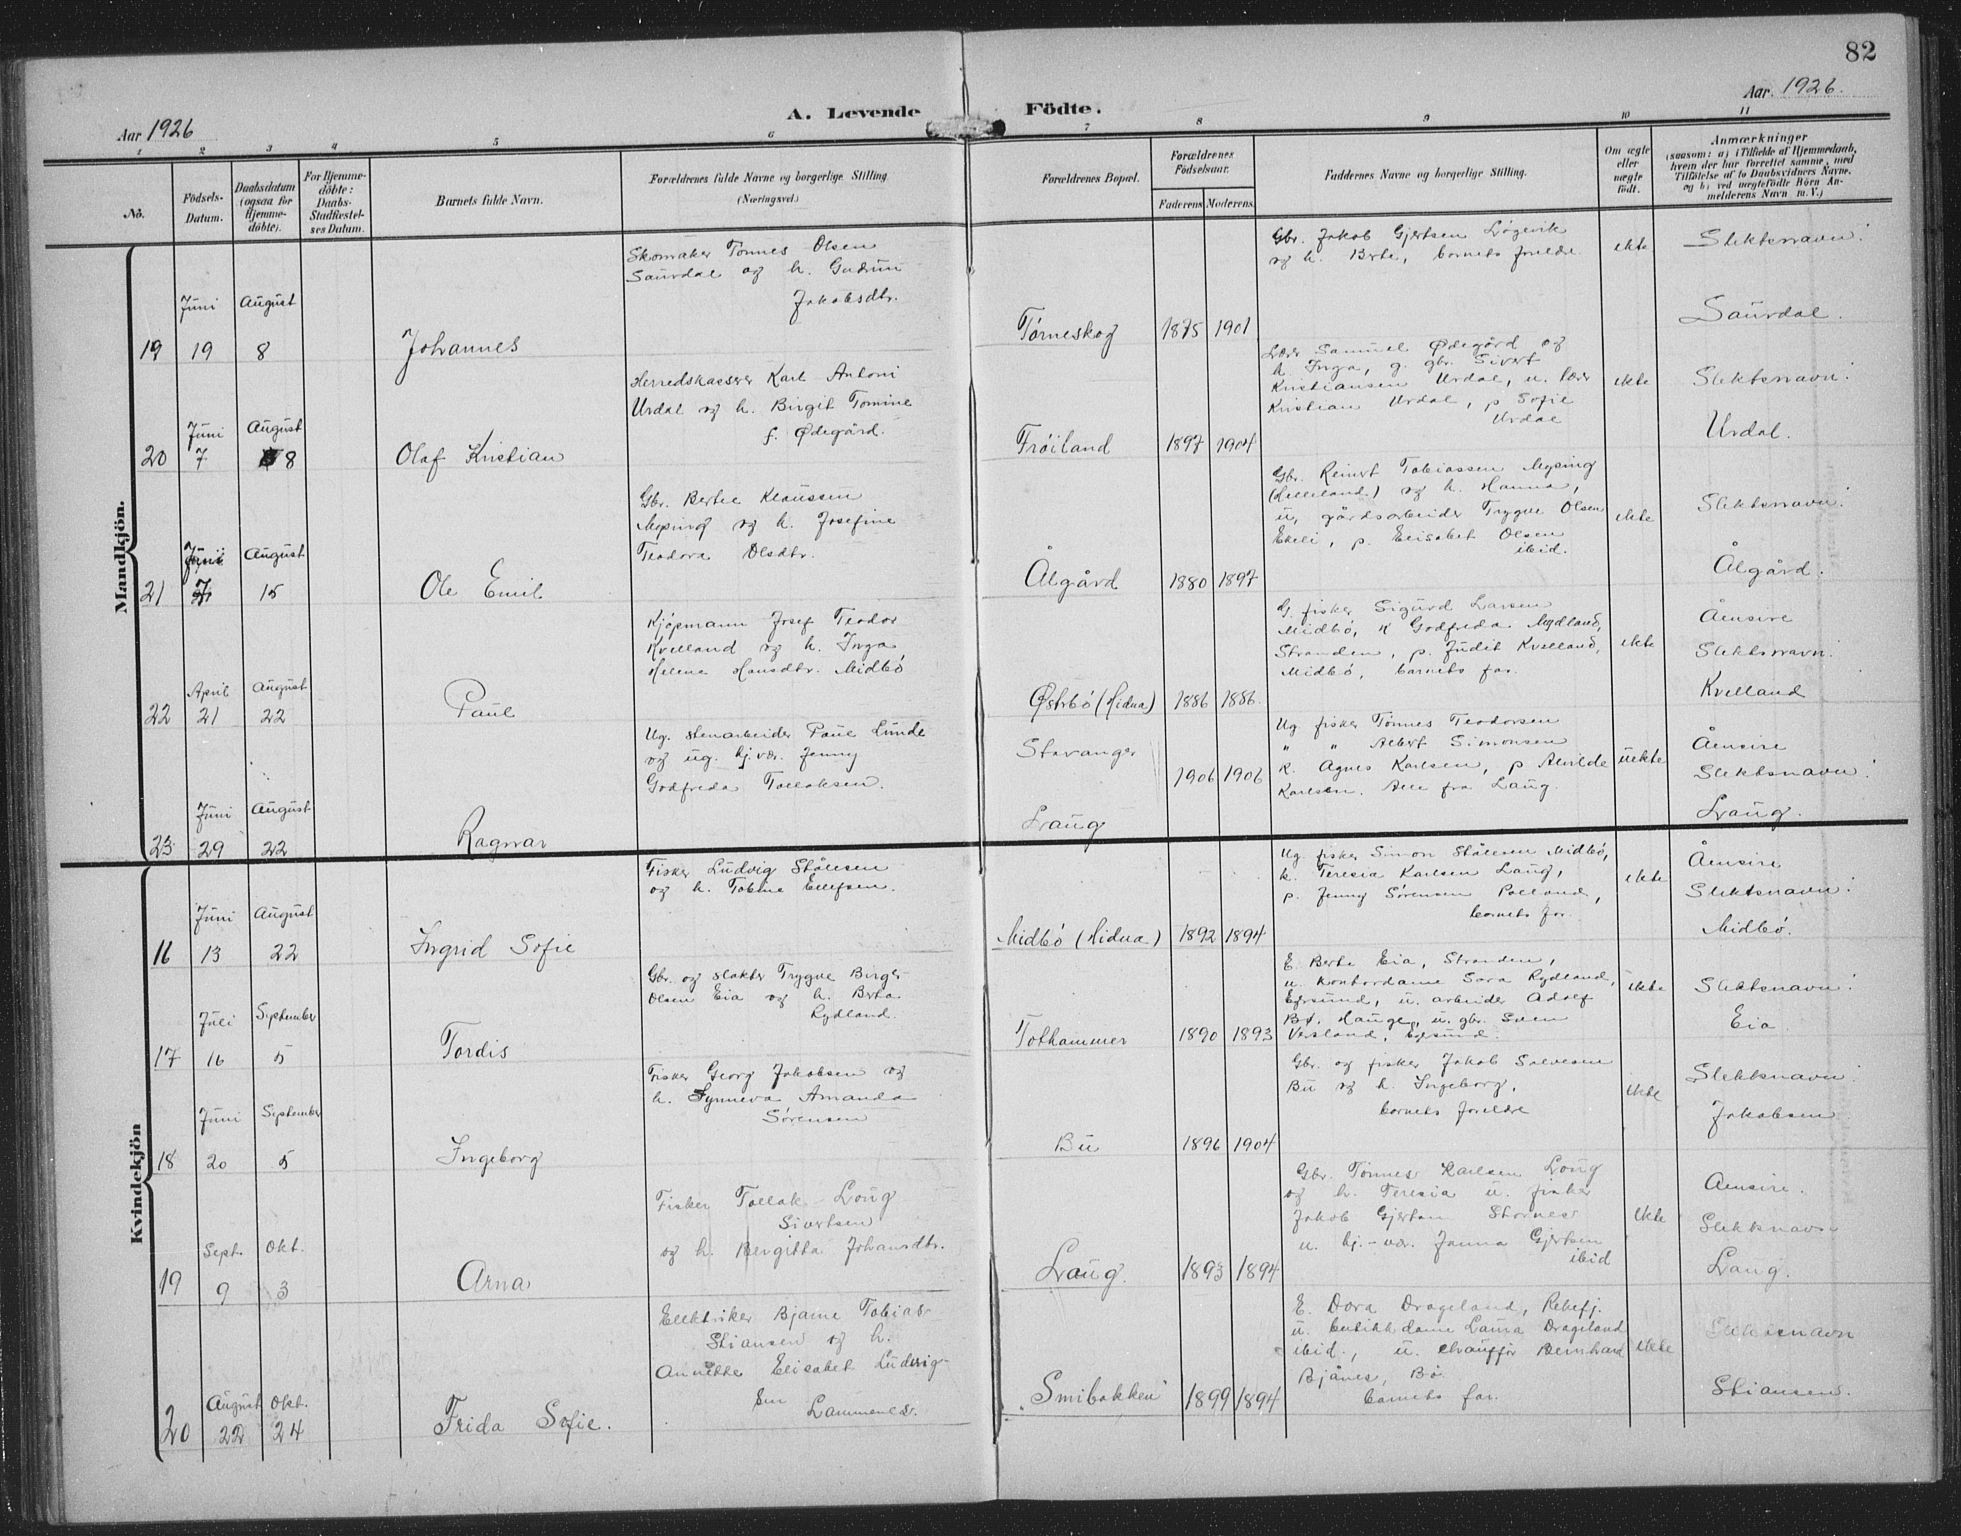 82
Aar 1926
A. Levende Födte.
Aar. 1926.
1 2 3 4 5 6 7 8 9 10 11
No.
Födsels-
Datum.
Daabsdatum
(ogsaa for
Hjemme-
döbte).
For Hjemme-
döbte:
Daabs-
Stadfæstel-
ses Datum.
Barnets fulde Navn.
Forældrenes fulde Navne og borgerlige Stilling
(Næringsvei.)
Forældrenes Bopæl.
Forældrenes
Födselsaar.
Faderens. Moderens.
Faddernes Navne og borgerlige Stilling.
Om ægte
eller
uægte
födt.
Anmærkninger
(saasom: a) i Tilfælde af Hjemmedaab,
hvem der har forrettet samme, med
Tilföielse af to Daabsvidners Navne,
og b) ved uægtefödte Börn An-
melderens Navn m. V.)
Mandkjön.
19
Juni
19
August
8
Johannes
Skomaker Tønnes Olsen
Saurdal og h. Gudrun
Jakobsdtr.
Tørneskog
1875 1901
Gbr. Jakob Gjertsen Løgevik
og h. Berte, barnets forældre
ekte
Slektsnavn:
Saurdal.
20
Juni
7
August
8
Olaf Kristian
Herredskasserer Karl Antoni
Urdal og h. Birgit Tomine
f. Ødegård.
Frøiland
1897 1904
Lærer Samuel Ødegård og
h. Inga, g. gbr. Sivert
Kristiansen Urdal, u. lærer
Kristian Urdal, p Sofie
Urdal
ekte
Slektsnavn:
Urdal.
21
Juni
7
August
15
Ole Emil
Gbr. Bertel Klaussen
Mysing og h. Josefine
Teodora Olsdtr.
Ålgård
1880 1897
Gbr. Reinert Tobiassen Mysing
(Lilleland) og h. Hanna,
u, gårdsarbeider Trygve Olsen
Ekeli, p. Elisabet Olsen
ibid.
ekte
Slektsnavn:
Ålgård.
22
April
21
August
22
Paul
Kjøpmann Josef Teodor
Kvelland og h. Inga
Helene Hansdtr. Midbö
Østrbö (Hidra)
1886 1886.
G. fisker Sigurd Larsen
Midbö, k Godfreda Mydland,
Stranden, p. Judit Kvelland,
Midbö, barnets far.
ekte
Åensire
Slektsnavn:
Kvelland
23
Juni
29
August
22
Ragnar
Ug. stenarbeider Paul Lunde
og ug. hj.vær. Jenny
Godfreda Tollaksen.
Stavanger
Laug
1906 1906
Ug fisker Tønnes Teodorsen
" " Albert Simonsen
k. Agnes Karlsen, p Alvilde
Karlsen. Alle fra Laug.
uekte
Åensire
Slektsnavn:
Laug.
Kvindekjön
16
Juni
13
August
22
Ingrid Sofie
Fisker Ludvig Stålesen
og h. Tobine Ellefsen.
Midbö (Hidra)
1892 1894
Ug fisker Simon Stålesen Midbö,
k. Teresia Karlsen Laug,
p. Jenny Sørensen,
barnets far.
ekte
Åensire
Slektsnavn:
Midbö.
17
Juli
16
September
5
Tordis
Gbr. og slakter Trygve Birger
Olsen Eia og h. Berta
Rydland.
Tothammer
1890 1893
E. Berte Eia, Stranden,
u. kontordame Sara Rydland,
Egersund, u. arbeider Adolf
Bö. Hauge, u. gbr. Sven
Versland, Egersund.
ekte
Slektsnavn:
Eia
18
Juni
20
September
5
Ingeborg
Fisker Georg Jakobsen og
h. Synneva Amanda
Sørensen
Bu
1896 1904
Gbr. og fisker Jakob Salvesen
Bu og h. Ingeborg,
barnets forældre
ekte
Slektsnavn:
Jakobsen
19
Sept.
9
Okt.
3
Arna
Fisker Tollak Laug
Sivertsen
og h. Bergitta Johansdtr.
Laug.
1893 1894
Gbr. Tønnes Karlsen Laug
og h. Teresia u. fisker
Jakob Gjertsen Stornes
u. hj.-vær. Janna Gjertsen
ibid
ekte
Aensire.
Slektsnavn
Laug.
20
August
22
Okt.
24
Frida Sofie.
Elektriker Bjarne Tobias
Stiansen og h.
Annette Elisabet Ludvig-
sen
Smibakken
1899 1894
E. Dora Drageland, Rekefj.
u. butikkdame Laura Drageland
ibid., u. chauffør Bernhard
Bjånes, Bö.
barnets far.
ekte
Slektsnavn
Stiansen.